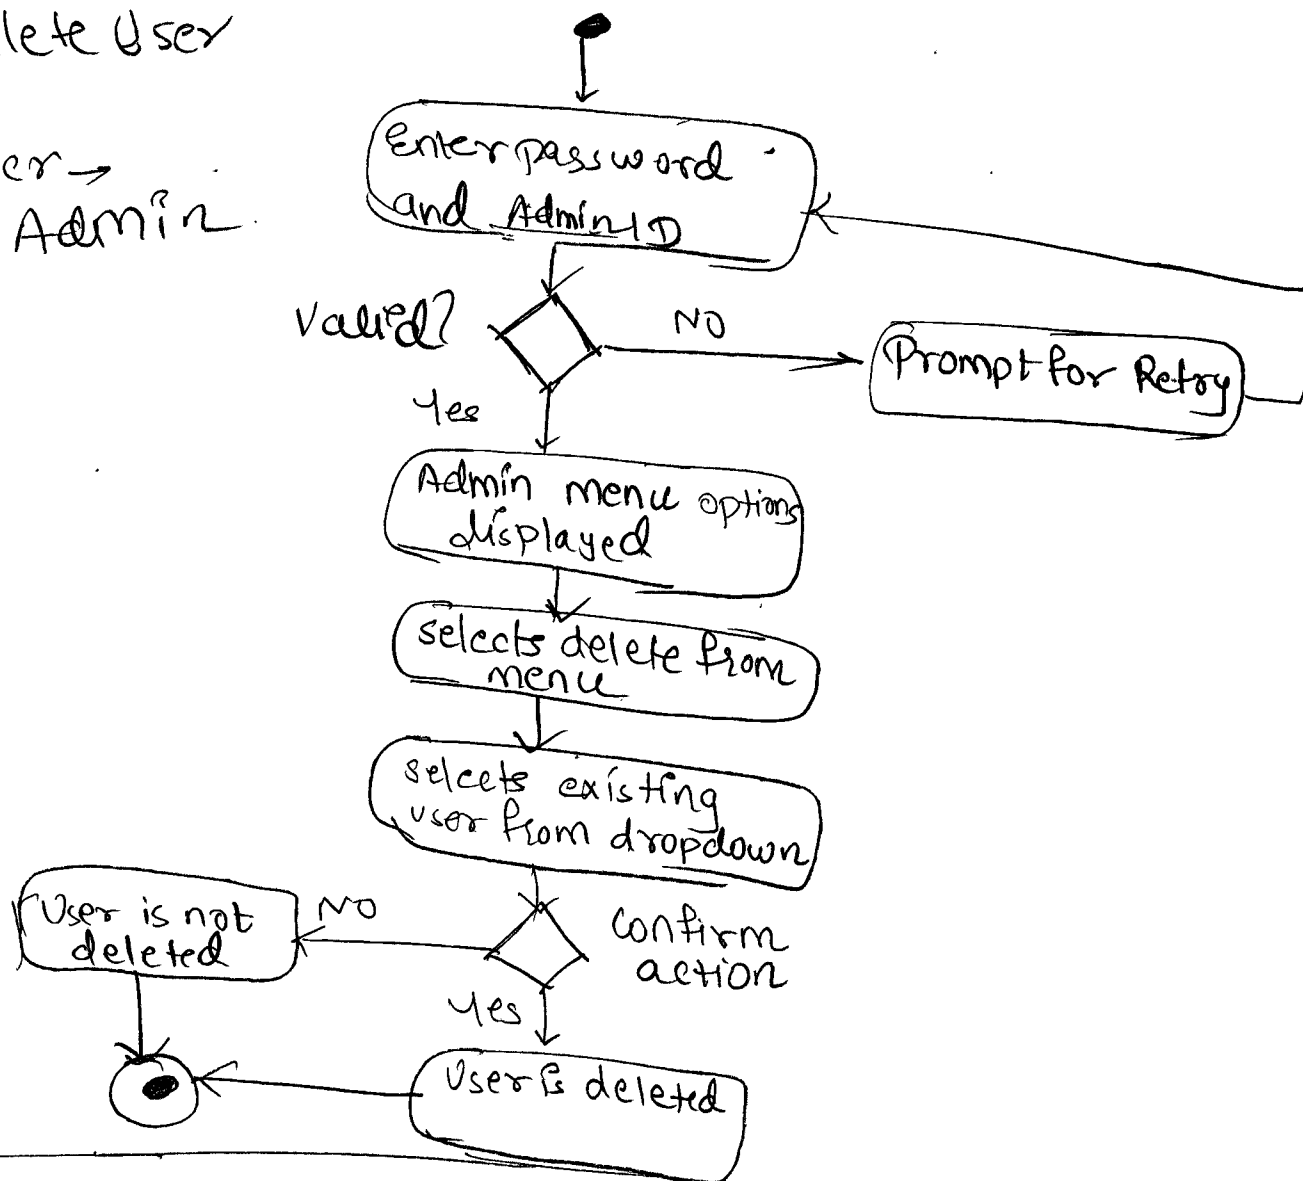 lete User
er →
Admin
Enter password
and Admin ID
Valied?
NO
Prompt for Retry
Yes
Admin menu options
displayed
selects delete from
menu
selcets existing
user from dropdown
User is not
deleted
NO
confirm
action
Yes
User is deleted